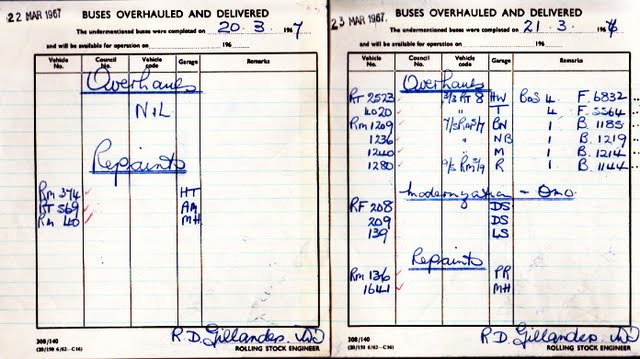 22 MAR 1967
BUSES OVERHAULED AND DELIVERED
The undermentioned buses were completed on 20 . 3 . 1967
and will be available for operation on 196
Vehicle No. Council No. Vehicle code Garage Remarks
Overhauls
NIL
Repaints
RM 374 HT
RT 569 AM
RM 40 MH
R.D. Gillander
308/140
(20/150 6/62—C16) ROLLING STOCK ENGINEER
23 MAR 1967.
BUSES OVERHAULED AND DELIVERED
The undermentioned buses were completed on 21 . 3 . 196
and will be available for operation on 196
Vehicle No. Council No. Vehicle code Garage Remarks
Overhauls
RT 2523 3/3 RT 8 HW BOS 4 F. 6832
4020 " T 4 F. 5564
RM 1209 BN 1 B. 1185
1236 " NB 1 B. 1219
1240 " M 1 B. 1214
1280 R 1 B. 1144
Modernization - Omo
RF 208 DS
209 DS
139 LS
Repaints
RM 136 PR
1641 MH
R.D. Gillander
308/140
(20/150 6/62—C16) ROLLING STOCK ENGINEER